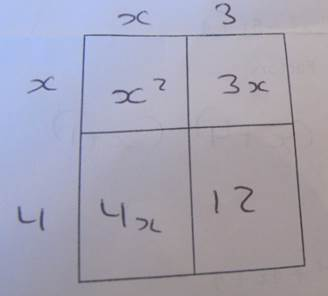 x 3
x x² 3x
4 4x 12